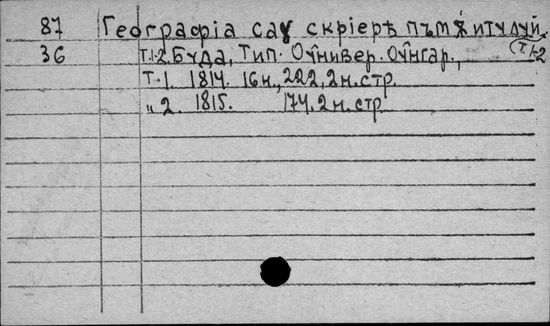 87 Географіа саꙋ скріерѣ пъмѫнтулуй.
36 Т.1-2. Буда, Тип. Оўнивер. Оўнгар., (т. 1-2
Т.1. 1814. 16н., 222, 2н. стр.
„ 2. 1815. 174, 2н. стр